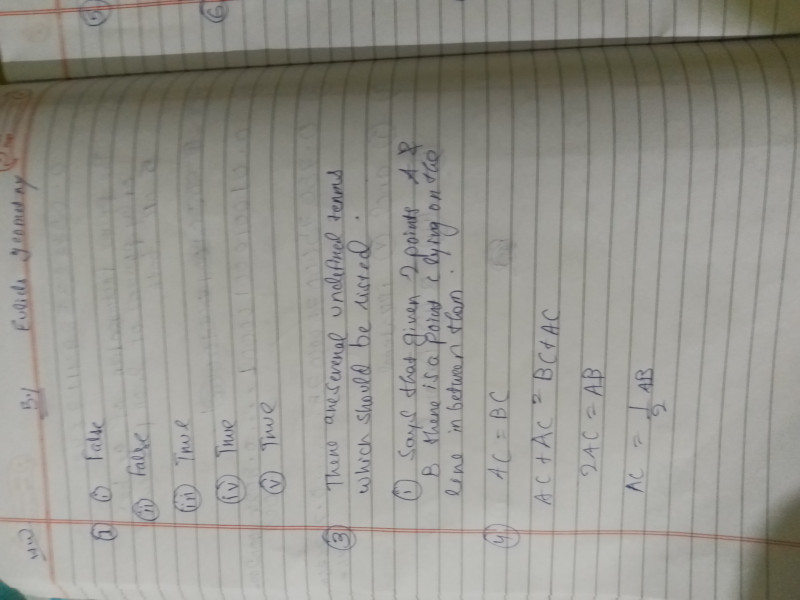 HW
By Euclids geometry
Q i) False
ii) False
iii) True
iv) True
v) True
3) There are several undefined terms
which should be listed.
i) Says that given 2 points A &
B there is a point C lying on the
line in between than.
4) AC = BC
AC + AC = BC + AC
2AC = AB
AC = 1/2 AB
5
6